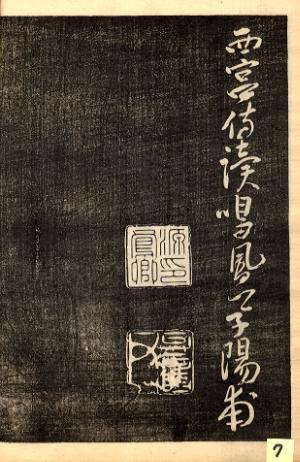 西宮侍讀鳴鳳卿子陽甫
7